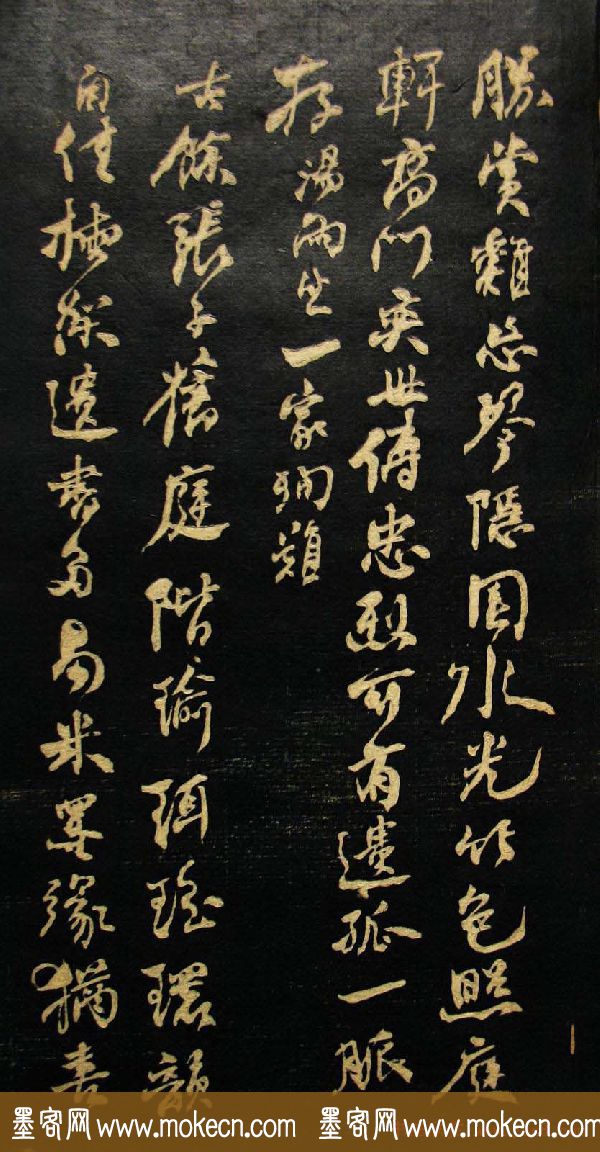 勝賞難忘琴隱園水光竹色照庭
軒高門奕世傳忠烈可有遺孤一脈
存湯雨生一家殉難
古餘張子舊庭階瑜珥瑤環韻
自佳插架遺書多易米墨緣猶喜
墨客网 www.mokecn.com 墨客网 www.mokecn.com